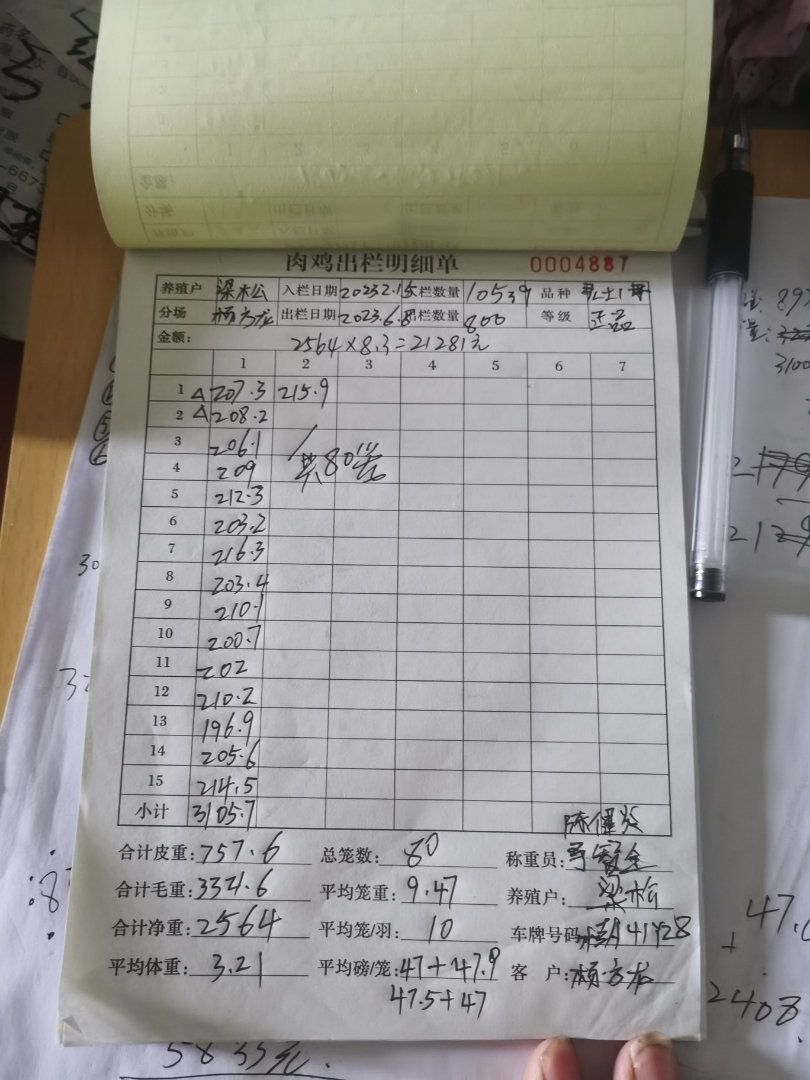 肉鸡出栏明细单 0004887
养殖户 梁松 入栏日期 2023.2.15 栏数量 10539 品种
分场 杨方龙 出栏日期 2023.6.8 栏数量 800 等级 正品
金额: 2564×8.3=21281元
1 2 3 4 5 6 7
1 △207.3 215.9
2 △208.2
3 206.1
4 209 共80笼
5 212.3
6 203.2
7 216.3
8 203.4
9 210.1
10 200.7
11 202
12 210.2
13 196.9
14 205.6
15 214.5
小计 3105.7
合计皮重: 757.6 总笼数: 80 称重员:
合计毛重: 3321.6 平均笼重: 9.47 养殖户: 梁松
合计净重: 2564 平均笼/羽: 10 车牌号码
平均体重: 3.21 平均磅/笼: 47+47.9 客户: 杨方龙
47.5+47
5835元.
2408